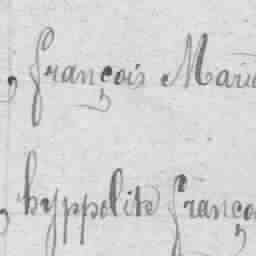 , françois Marie
, hyppolite françoi